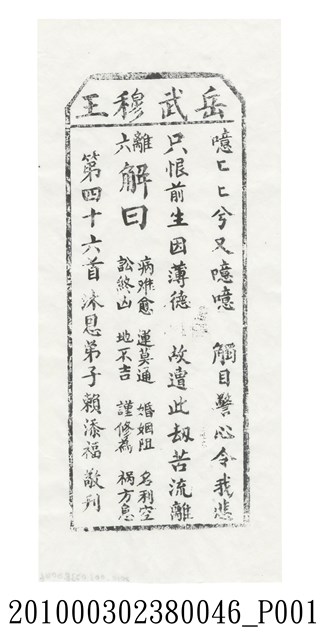 岳武穆王
噫匕匕兮又噫噫 觸目警心令我悲
只恨前生因薄德 故遭此劫苦流離
離六 解曰
病难愈 運莫通 婚姻阻 名利空
訟終凶 地不吉 謹修為 禍方息
第四十六首 沐恩弟子賴添福敬刊
201000302380046_P001